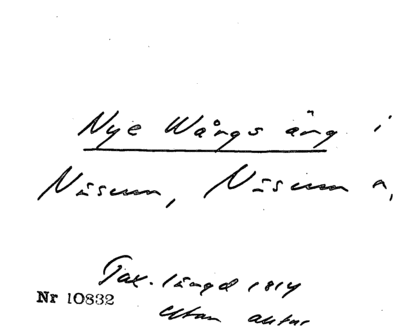 Nye Wårgs äng i
Nüsum, Nüsum a,
Tax. längd 1814
Nr 10832
utan aktnr